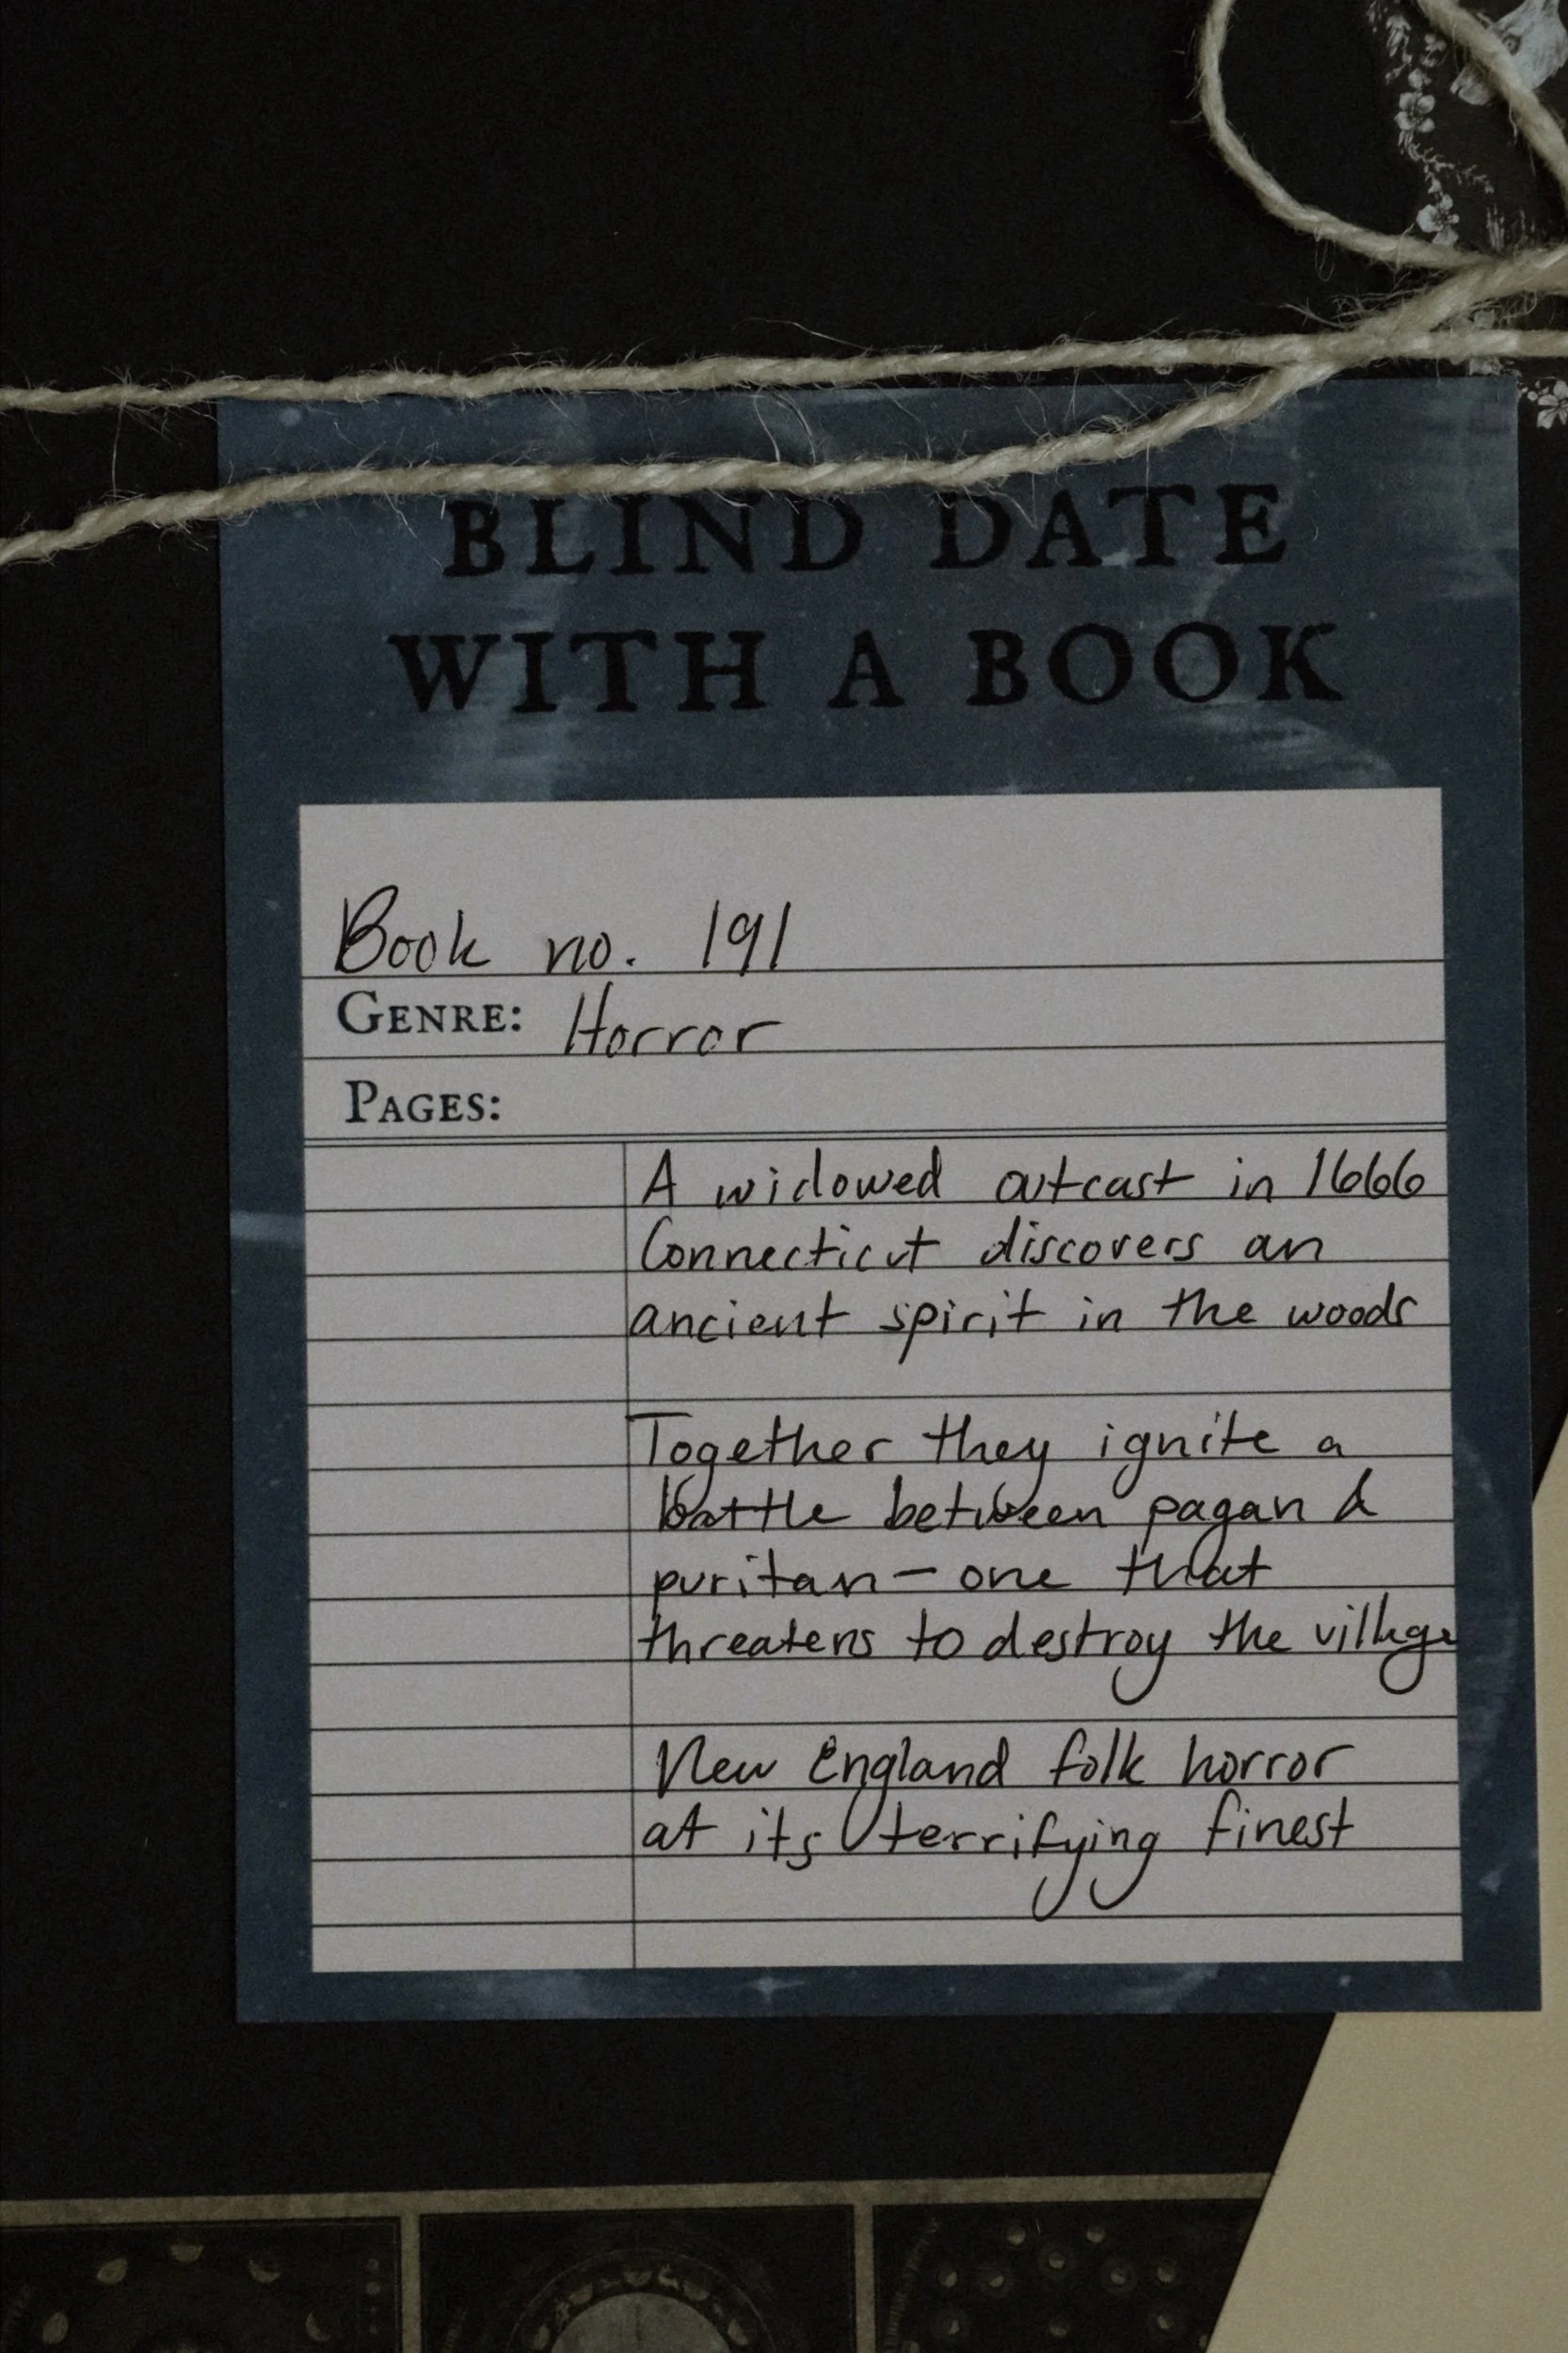 BLIND DATE
WITH A BOOK
Book no. 191
GENRE: Horror
PAGES:
A widowed outcast in 1666
Connecticut discovers an
ancient spirit in the woods
Together they ignite a
battle between pagan &
puritan — one that
threatens to destroy the village
New England folk horror
at its terrifying finest